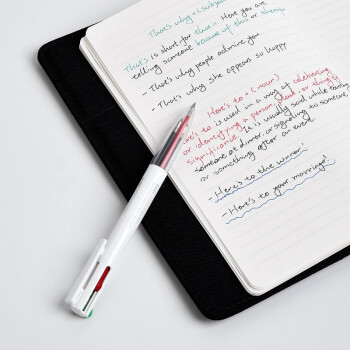 That's why + (subject
That's is short for that is. Here you are
telling someone because of this or
- That's why people admire you
- That's why she appears so happy
Here's to + (noun)
Here's to is used in a way of celebrating
or identifying a person, and or thing's
significance. It is usually said while
someone at dinner, or signing to someone,
or something after an event.
- Here's to the winner!
- Here's to your marriage!